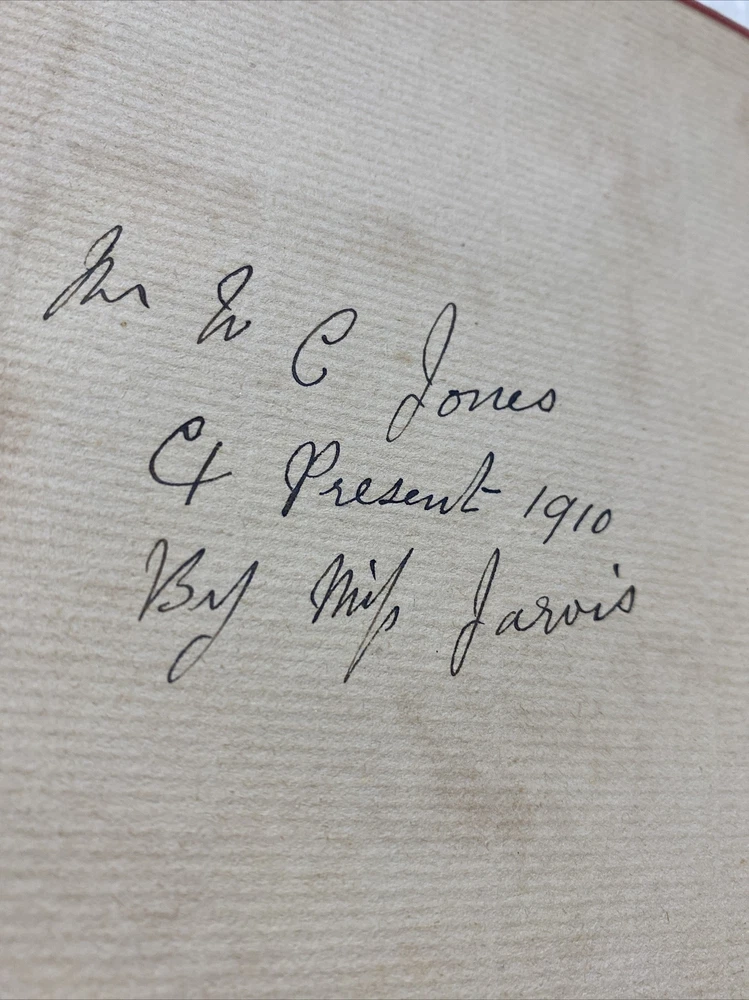 Mr W C Jones
A Present 1910
By Miss Jarvis